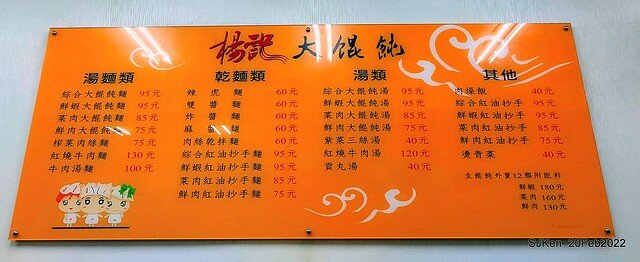 楊記 大餛飩
湯麵類
綜合大餛飩麵 95元
鮮蝦大餛飩麵 95元
菜肉大餛飩麵 85元
鮮肉大餛飩麵 75元
榨菜肉絲麵 75元
紅燒牛肉麵 130元
牛肉湯麵 100元
乾麵類
辣虎麵 60元
雙醬麵 60元
炸醬麵 60元
麻醬麵 60元
肉絲乾拌麵 60元
綜合紅油抄手麵 95元
鮮蝦紅油抄手麵 95元
菜肉紅油抄手麵 85元
鮮肉紅油抄手麵 75元
湯類
綜合大餛飩湯 95元
鮮蝦大餛飩湯 95元
菜肉大餛飩湯 85元
鮮肉大餛飩湯 75元
紫菜三絲湯 40元
紅燒牛肉湯 120元
貢丸湯 40元
其他
肉燥飯 40元
綜合紅油抄手 95元
鮮蝦紅油抄手 95元
菜肉紅油抄手 85元
鮮肉紅油抄手 75元
燙青菜 40元
生餛飩外賣12顆附配料
鮮蝦 180元
菜肉 160元
鮮肉 130元
SJKen 20Feb2022